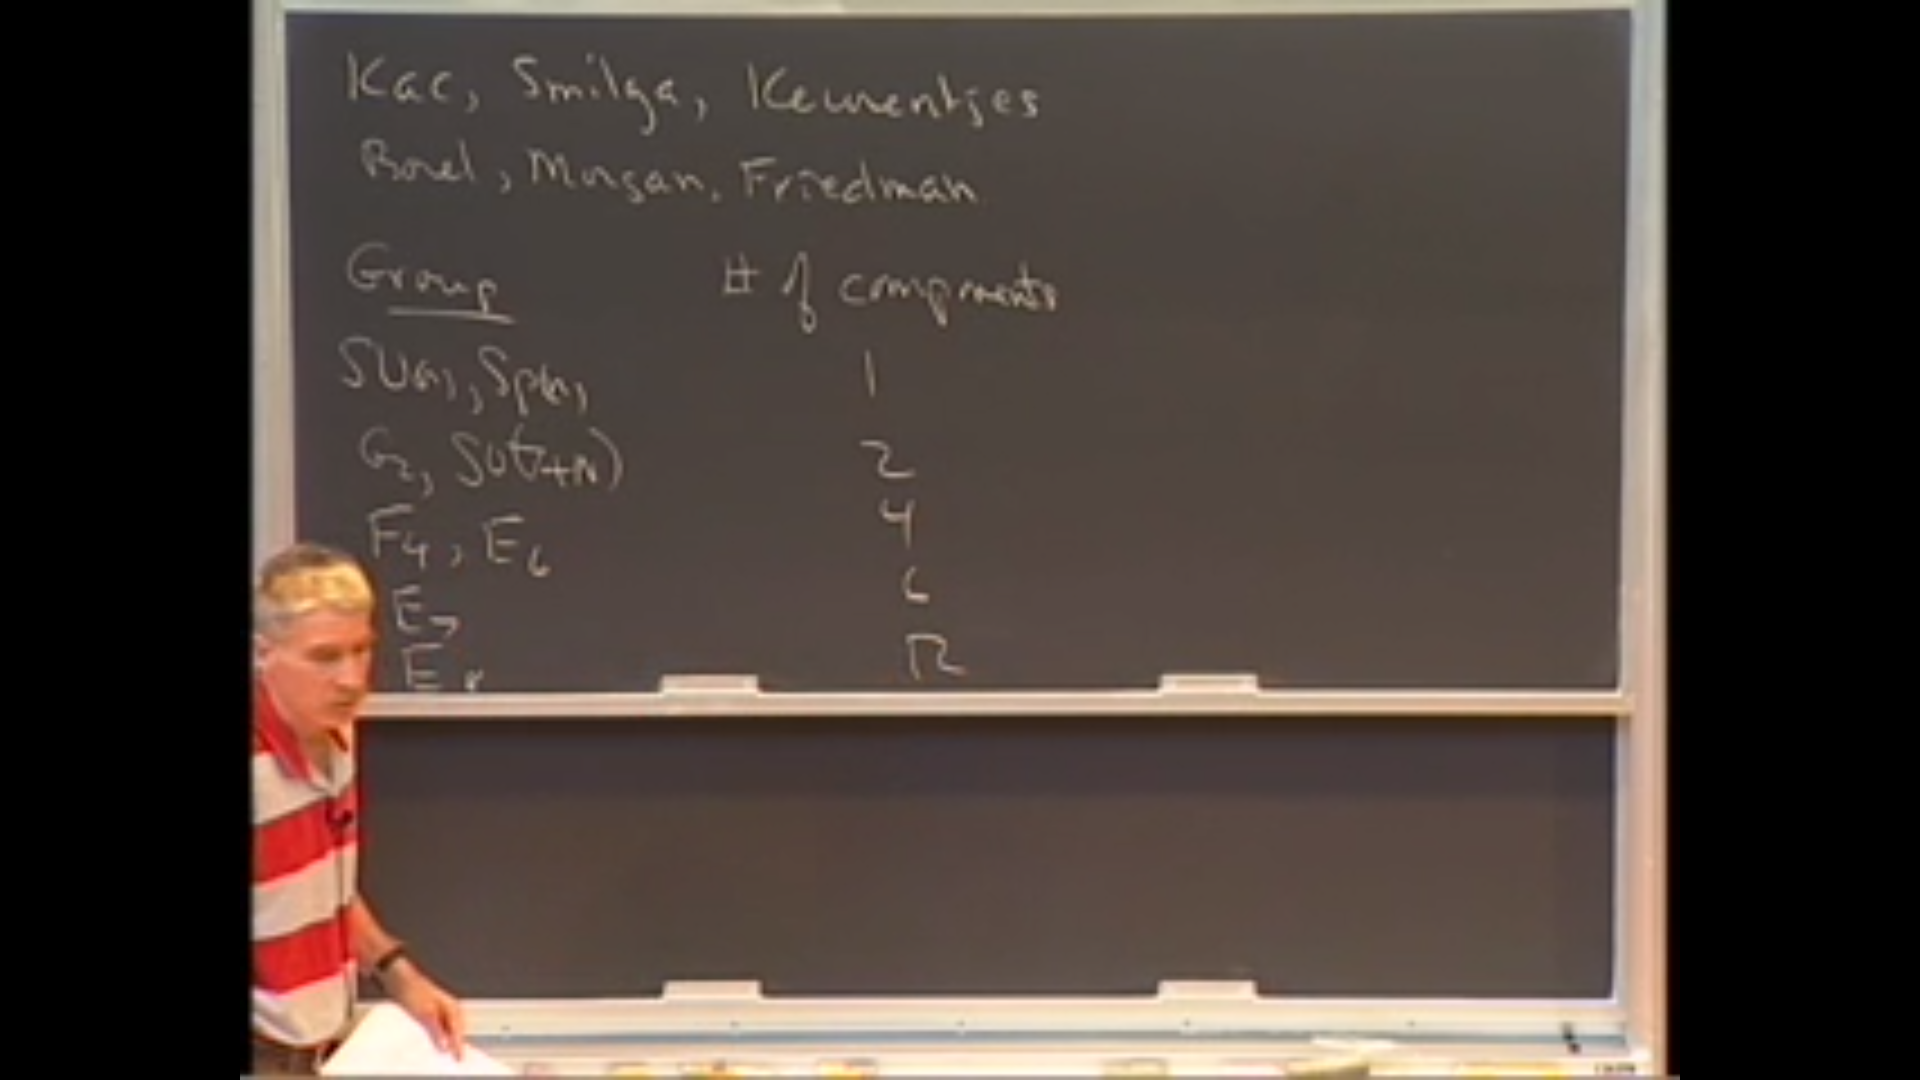 Kac, Smilga, Keurentjes
Borel, Morgan, Friedman
Group # of components
SU(n), Sp(n) 1
G2, SO(7+N) 2
F4, E6 4
E7 6
E8 12